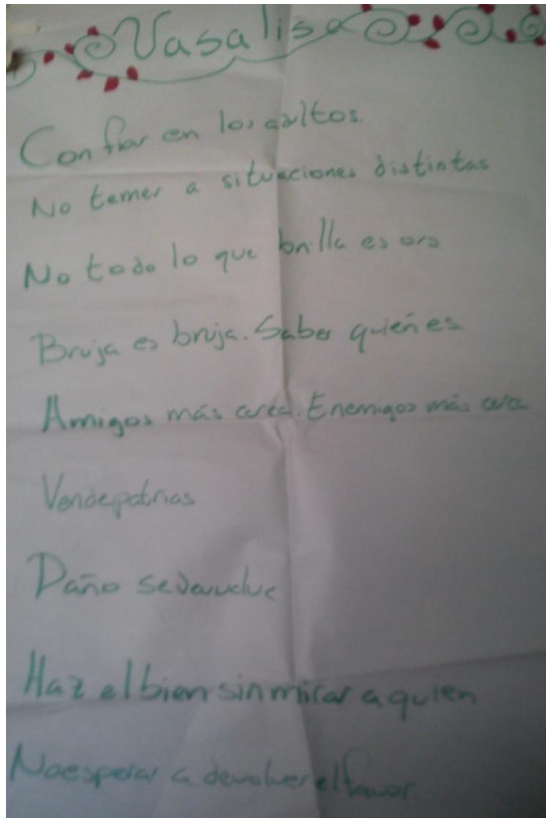 Vasalisa
Confiar en los adultos.
No temer a situaciones distintas
No todo lo que brilla es oro
Bruja es bruja. Saber quién es
Amigos más cerca. Enemigos más cerca
Vendepatrias
Daño se devuelve
Haz el bien sin mirar a quien
No esperar a devolver el favor.